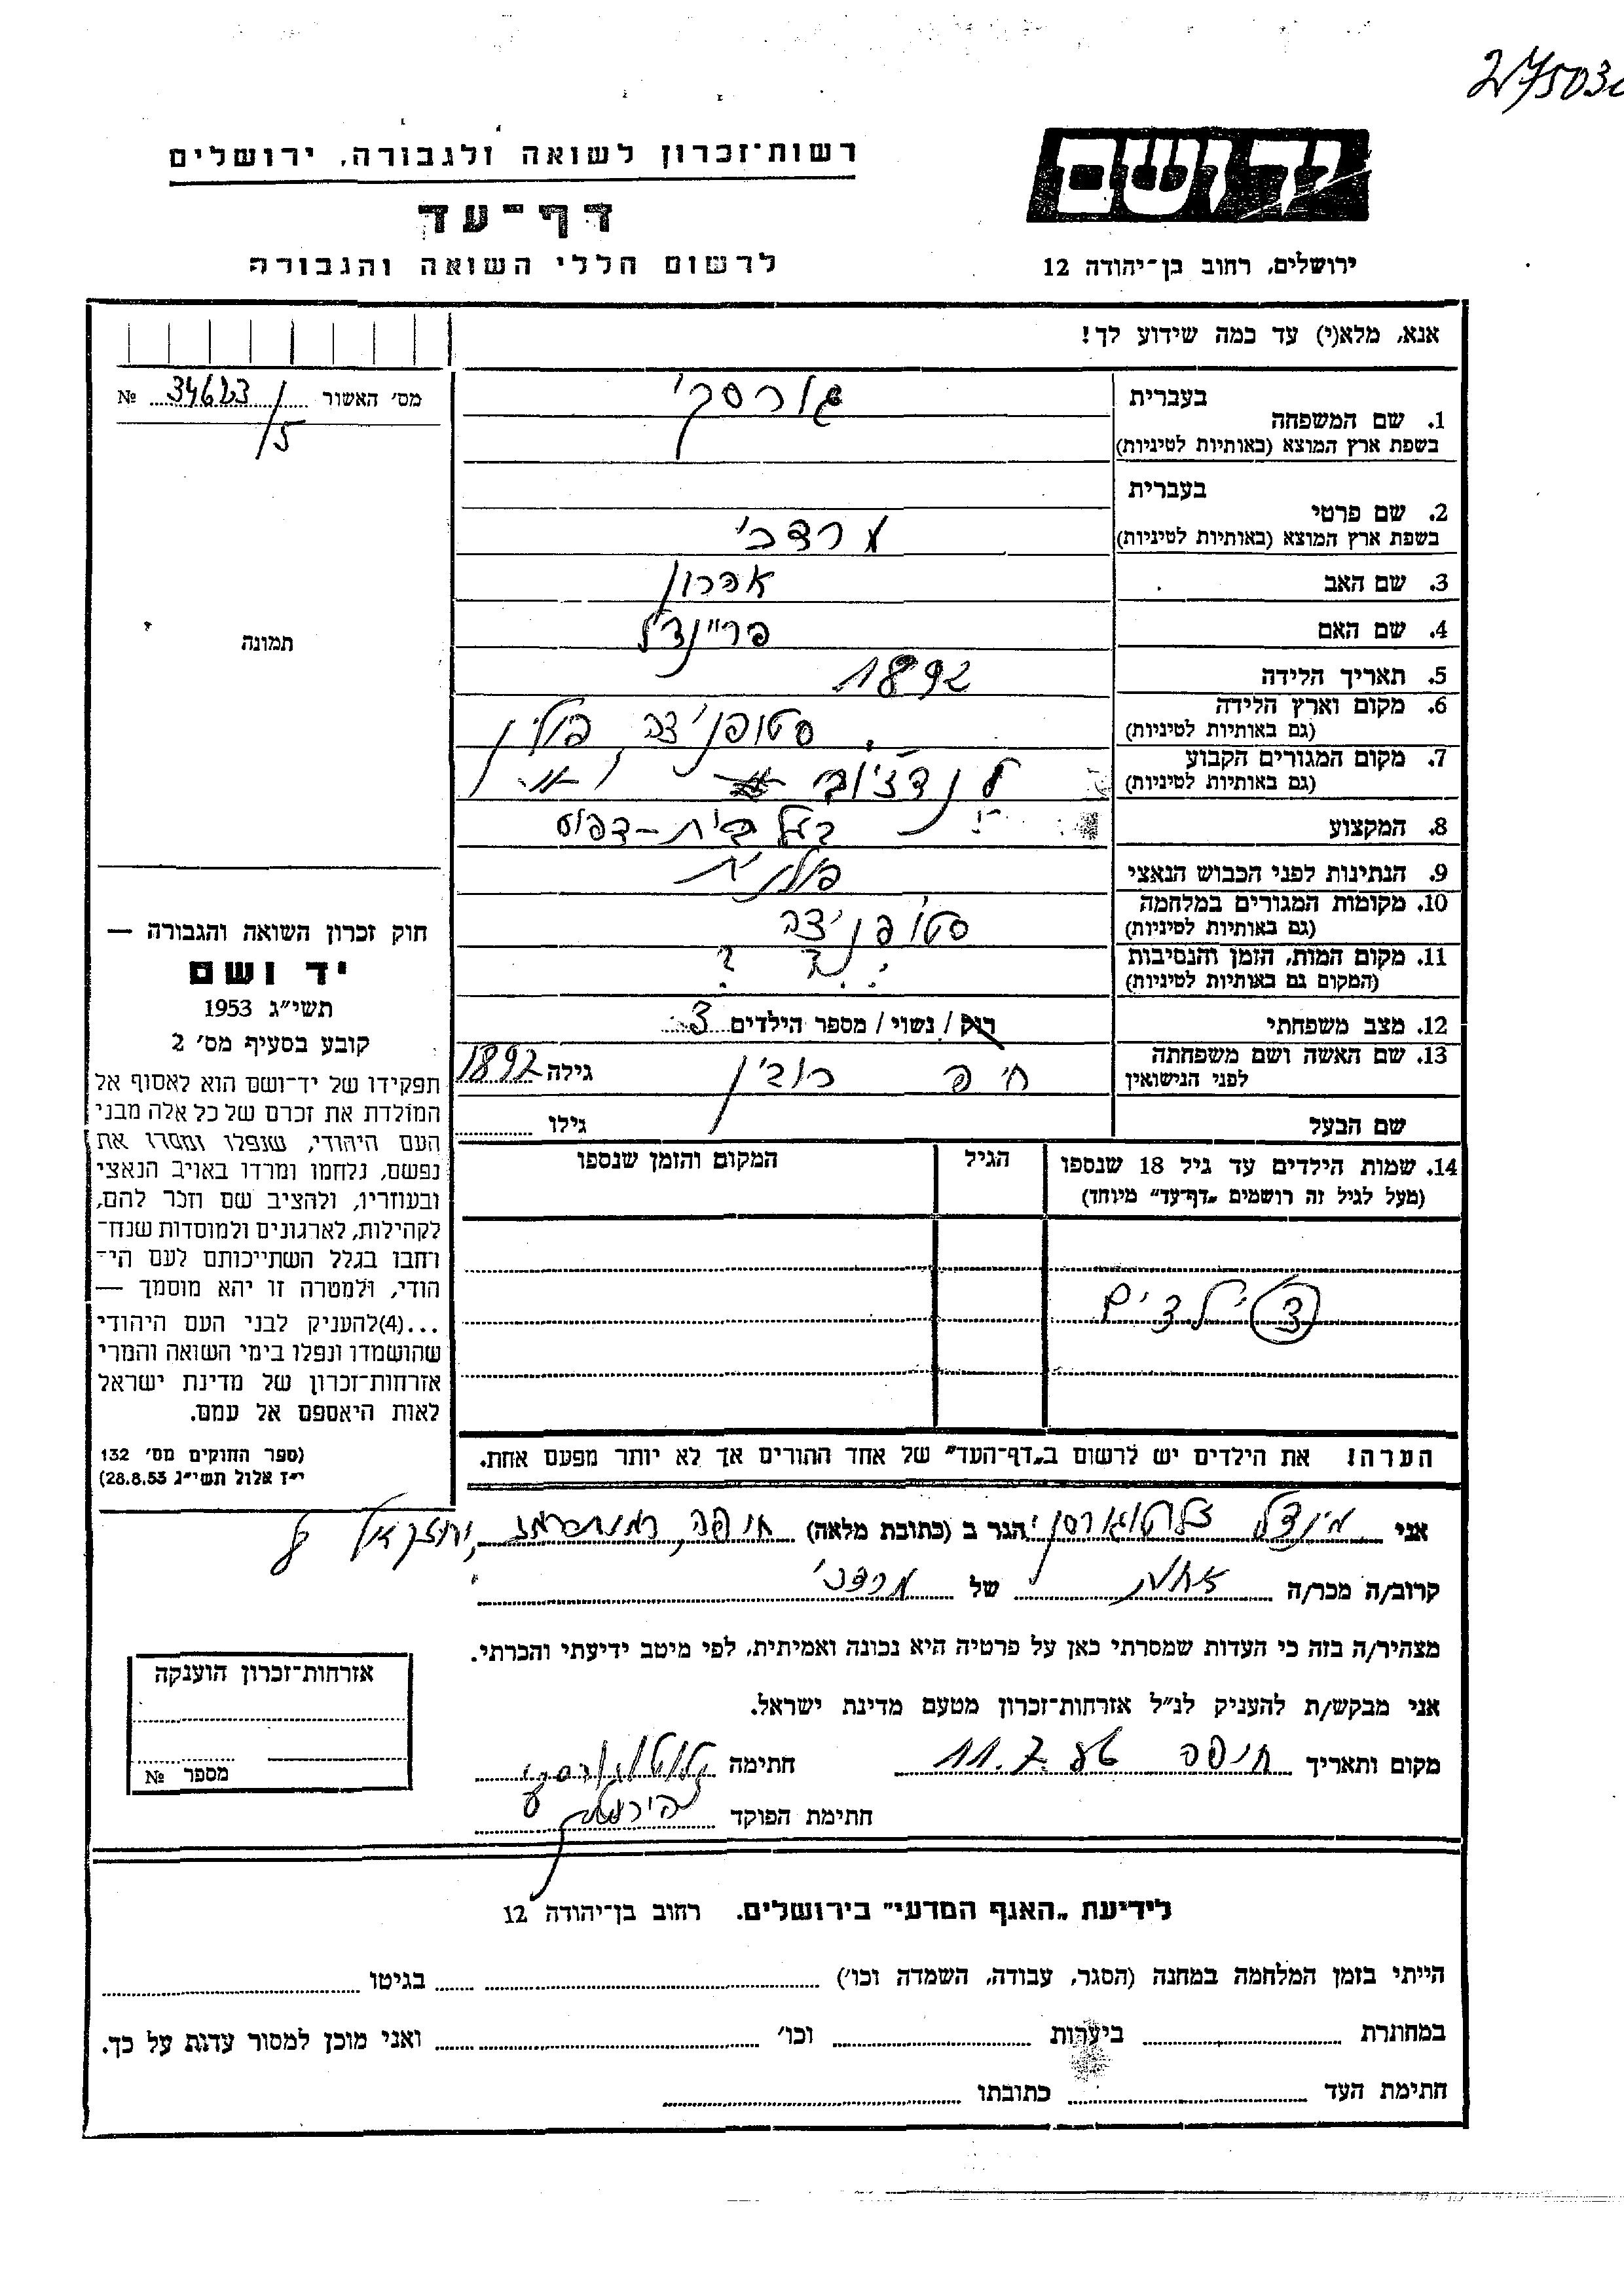 275030
רשות-זכרון לשואה ולגבורה, ירושלים
דף-עד
לרשום חללי השואה והגבורה
יד ושם
ירושלים, רחוב בן-יהודה 12
אנא, מלא(י) עד כמה שידוע לך!
מס' האשור 34623/5 №
1. שם המשפחה
בעברית גורסקי
בשפת ארץ המוצא (באותיות לטיניות)
2. שם פרטי
בעברית
בשפת ארץ המוצא (באותיות לטיניות) מרדכי
3. שם האב אהרון
4. שם האם פריינדל
5. תאריך הלידה 1892
6. מקום וארץ הלידה סטופניצה, פולין
(גם באותיות לטיניות)
7. מקום המגורים הקבוע
(גם באותיות לטיניות)
8. המקצוע בעל בית-דפוס
9. הנתינות לפני הכבוש הנאצי פולנית
10. מקומות המגורים במלחמה סטופניצה
(גם באותיות לטיניות)
11. מקום המות, הזמן והנסיבות
(המקום גם באותיות לטיניות)
12. מצב משפחתי רוק / נשוי / מספר הילדים 3
13. שם האשה ושם משפחתה חיה רובין גילה 1892
לפני הנישואין
שם הבעל גילו
14. שמות הילדים עד גיל 18 שנספו הגיל המקום והזמן שנספו
(מעל לגיל זה רושמים „דף-עד" מיוחד)
3 ילדים
הערה! את הילדים יש לרשום ב„דף-העד" של אחד ההורים אך לא יותר מפעם אחת.
תמונה
חוק זכרון השואה והגבורה —
יד ושם
תשי"ג 1953
קובע בסעיף מס' 2
תפקידו של יד-ושם הוא לאסוף אל
המולדת את זכרם של כל אלה מבני
העם היהודי, שנפלו ומסרו את
נפשם, נלחמו ומרדו באויב הנאצי
ובעוזריו, ולהציב שם וזכר להם,
לקהילות, לארגונים ולמוסדות שנח-
רחבו בגלל השתייכותם לעם הי-
הודי, ולמטרה זו יהא מוסמך —
...(4)להעניק לבני העם היהודי
שהושמדו ונפלו בימי השואה והמרי
אזרחות-זכרון של מדינת ישראל
לאות היאספם אל עמם.
(ספר החוקים מס' 132
י"ז אלול תשי"ג 28.8.53)
אני מינדל הגר ב (כתובת מלאה) חיפה,
קרוב/ה מכר/ה אחות של מרדכי
מצהיר/ה בזה כי העדות שמסרתי כאן על פרטיה היא נכונה ואמיתית, לפי מיטב ידיעתי והכרתי.
אני מבקש/ת להעניק לנ"ל אזרחות-זכרון מטעם מדינת ישראל.
מקום ותאריך חיפה 11.7 חתימה
חתימת הפוקד
אזרחות-זכרון הוענקה
מספר №
לידיעת „האגף המדעי" בירושלים. רחוב בן-יהודה 12
הייתי בזמן המלחמה במחנה (הסגר, עבודה, השמדה וכו') בגיטו
במחתרת ביערות וכו' ואני מוכן למסור עדות על כך.
חתימת העד כתובתו